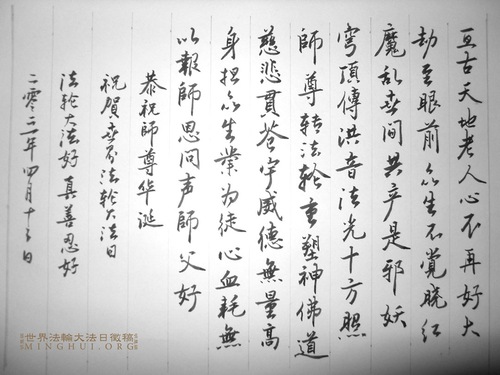 亘古天地老人心不再好大
劫至眼前众生不觉晓红
魔乱世间共产是邪妖
穹顶傳洪音法光十方照
師尊转法轮重塑神佛道
慈悲貫苍宇威德無量高
身担众生業为徒心血耗無
以報師恩问声師父好
恭祝師尊华诞
祝賀世界法轮大法日
法轮大法好真善忍好
二零二二年四月十三日
世界法輪大法日徵稿
MINGHUI.ORG